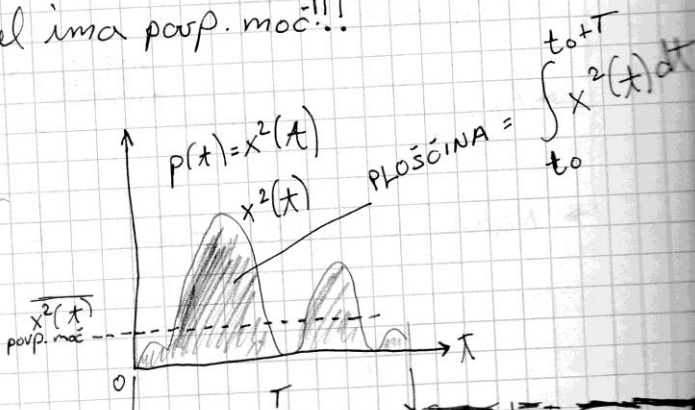 ima povp. moč!!!
p(t)=x²(t)
x²(t)
PLOŠČINA = ∫ x²(t)dt
t₀+T
t₀
x²(t)
povp. moč
0
T
t